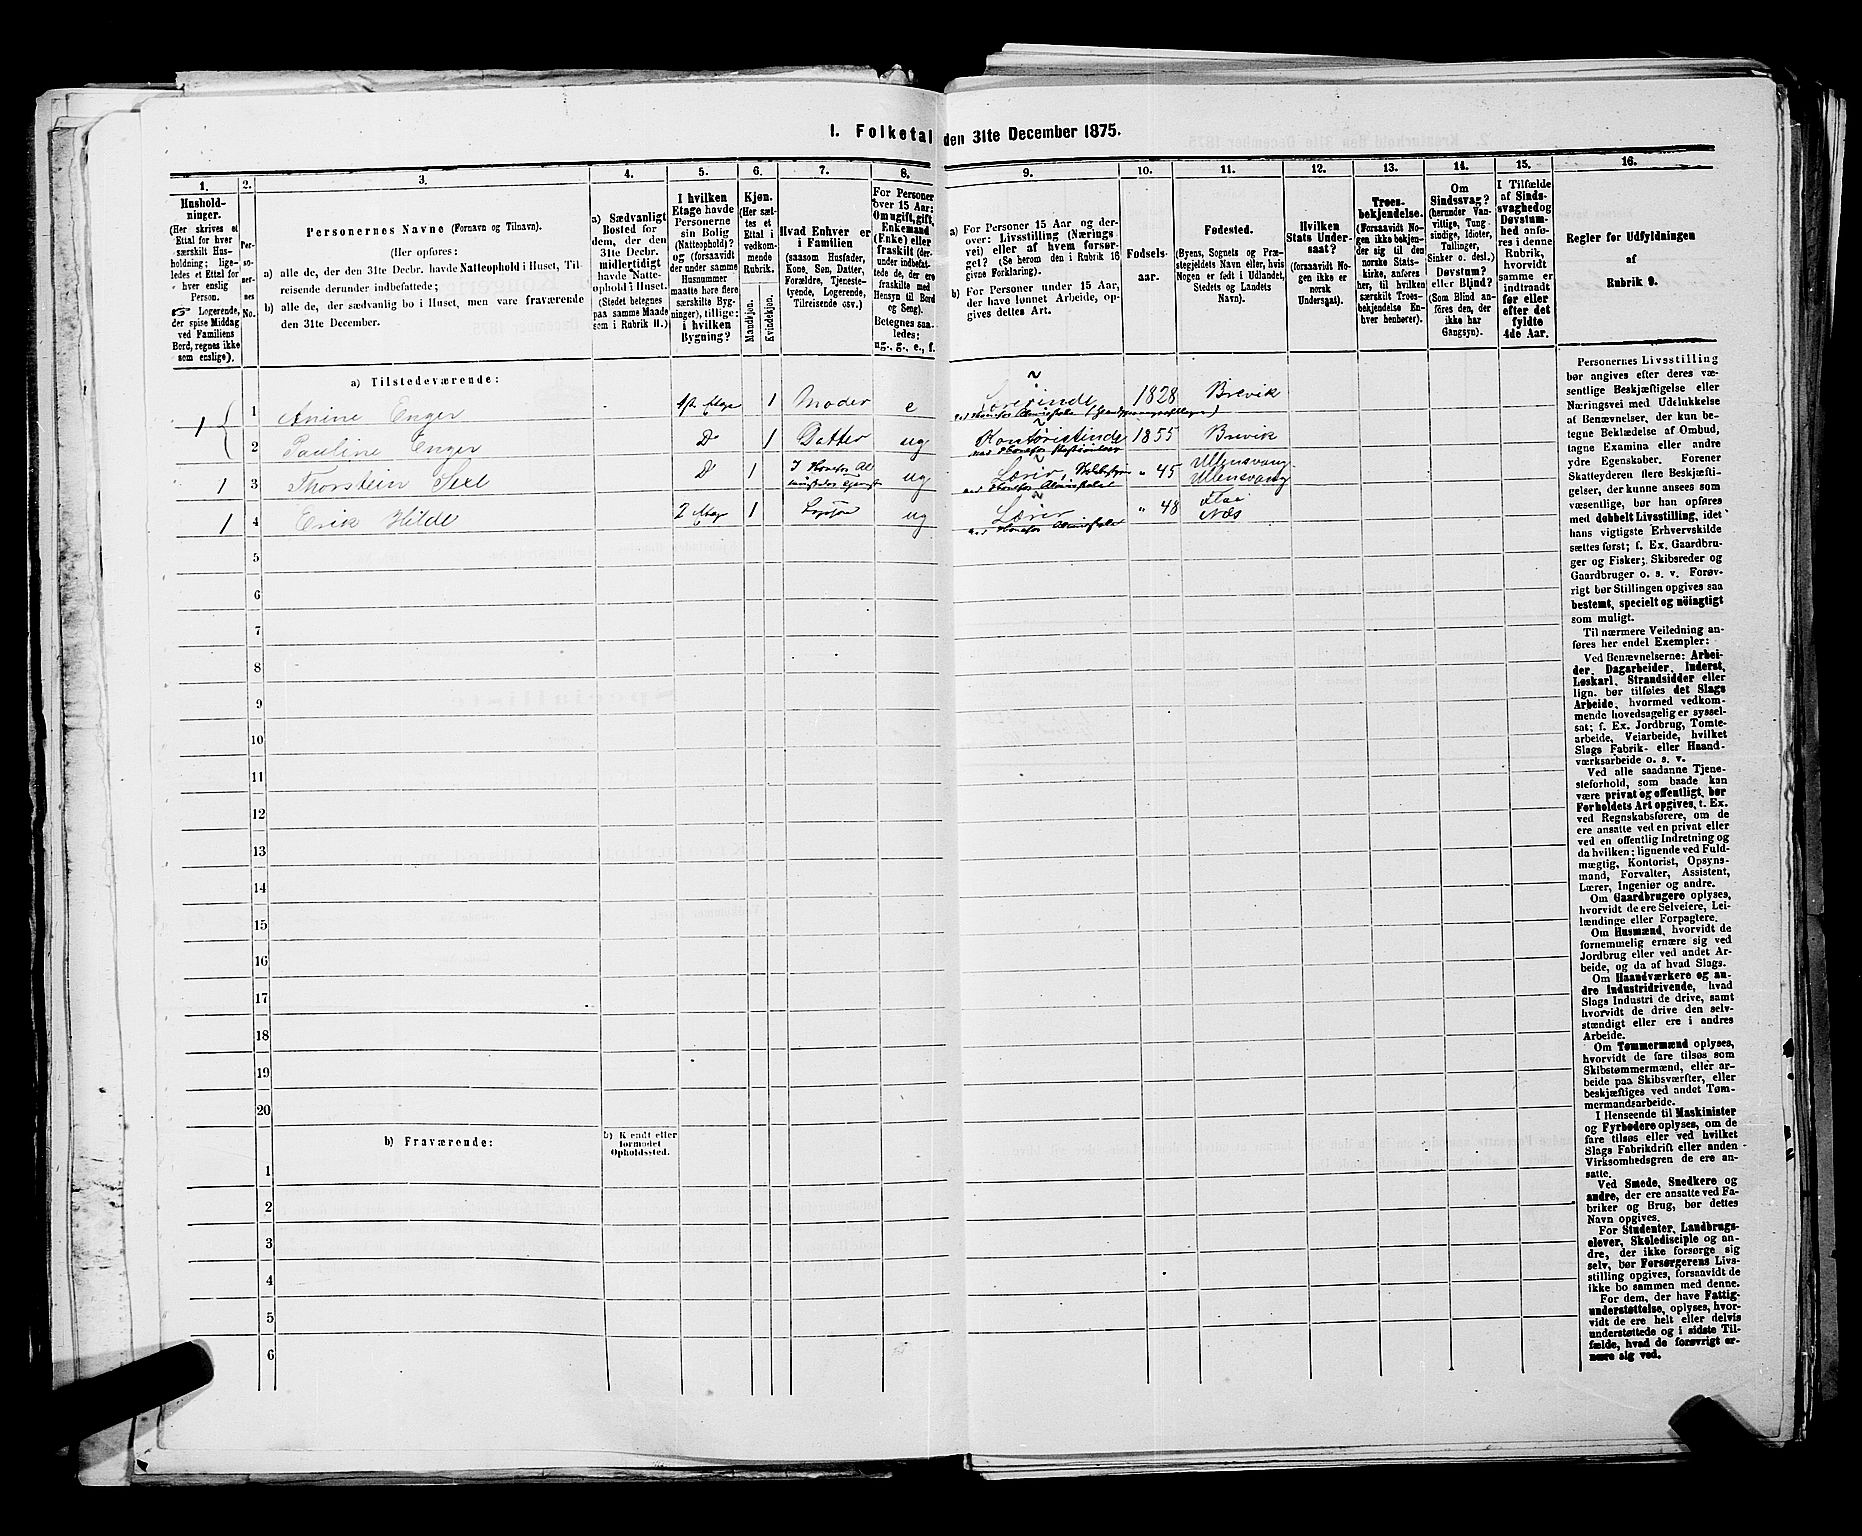 1. Folketal den 31te December 1875.
1.
2.
3.
4.
5.
6.
7.
8.
9.
10.
11.
12.
13.
14.
15.
16.
Husholdninger.
(Her skrives et
Ettal for hver
særskilt Husholdning;
ligeledes et Ettal for
hver enslig
Person.
Logerende,
der spise Middag
ved Familiens
Bord, regnes ikke
som enslige).
Personernes
No.
Personernes Navne (Fornavn og Tilnavn).
(Her opføres:
a) alle de, der den 31te Decbr. havde Natteophold i Huset, Tilreisende
derunder indbefattede;
b) alle de, der sædvanlig bo i Huset, men vare fraværende
den 31te December.
a) Sædvanligt
Bosted for
dem, der den
31te Decbr.
midlertidigt
havde Natteophold
i Huset.
(Stedet betegnes
paa samme Maade
som i Rubrik 11.)
I hvilken
Etage havde
Personerne
sin Bolig
(Natteophold)?
og (forsaavidt
der under samme
Husnummer
maatte høre flere
særskilte Bygninger),
tillige:
i hvilken
Bygning?
Kjøn.
(Her sættes
et
Ettal i
vedkommende
Rubrik.
Mandkjøn.
Kvindekjøn.
Hvad Enhver er
i Familien
(saasom Husfader,
Kone, Søn, Datter,
Forældre, Tjenestetyende,
Logerende,
Tilreisende osv.)
For Personer
over 15 Aar:
Om ugift, gift,
Enkemand
(Enke) eller
fraskilt (derunder
indbefattede
de, der ere
fraskilte med
Hensyn til Bord
og Seng).
Betegnes saaledes:
ug., g., e., f.
a) For Personer 15 Aar og derover:
Livsstilling (Næringsvei)
eller af hvem forsørget?
(Se herom den i Rubrik 16
givne Forklaring).
b) For Personer under 15 Aar,
der have lønnet Arbeide, opgives
dettes Art.
Fødselsaar.
Fødested.
(Byens, Sognets og Præstegjeldets
Navn eller, hvis
Nogen er født i Udlandet,
Stedets og Landets
Navn).
Hvilken
Stats Undersaat?
(forsaavidt Nogen
ikke er
norsk
Undersaat).
Troesbekjendelse.
(Forsaavidt Nogen
ikke bekjender
sig til den
norske Statskirke,
anføres
her, til hvilken
særskilt Troesbekjendelse
Enhver
henhører).
Om
Sindssvag?
(herunder Vanvittige,
Tungsindige,
Idioter,
Tullinger,
Sinker o. desl.)
Døvstum?
eller Blind?
(Som Blind anføres
den, der
ikke har
Gangsyn).
I Tilfælde
af Sindssvaghed
og
Døvstumhed
anføres
i denne
Rubrik,
hvorvidt
samme er
indtraadt
før eller
efter det
fyldte
4de Aar.
Regler for Udfyldningen
af
Rubrik 9.
a) Tilstedeværende:
1 1 Anine Enger 1ste Etage 1 Moder e Lærerinde 1828 Brevik
2 Pauline Enger Do 1 Datter ug Kontoristinde 1855 Brevik
1 3 Thorstein Sexe Do 1 ug Lærer " 45 Ullensvang Ullensvang
1 4 Erik Hilde 2 Etage 1 Logerende ug Lærer " 48 Flaa Næs
5
6
7
8
9
10
11
12
13
14
15
16
17
18
19
20
b) Fraværende:
b) Kjendt eller
formodet
Opholdssted.
1
2
3
4
5
6
Personernes Livsstilling
bør angives efter deres væsentlige
Beskjæftigelse eller
Næringsvei med Udelukkelse
af Benævnelser, der kun betegne
Beklædelse af Ombud,
tagne Examina eller andre
ydre Egenskaber. Forener
Skatteyderen flere Beskjæftigelser,
der kunne ansees som
væsentlige, bør han opføres
med dobbelt Livsstilling, idet
hans vigtigste Erhvervskilde
sættes først; f. Ex. Gaardbruger
og Fisker; Skibsreder og
Gaardbruger o. s. v. Forøvrigt
bør Stillingen opgives saa
bestemt, specielt og nöiagtigt
som muligt.
Til nærmere Veiledning anføres
her endel Exempler:
Ved Benævnelserne: Arbeider,
Dagarbeider, Inderst,
Løskarl, Strandsidder eller
lign. bør tilføies det Slags
Arbeide, hvormed vedkommende
hovedsagelig er sysselsat;
f. Ex. Jordbrug, Tomtearbeide,
Veiarbeide, hvilket
Slags Fabrik- eller Haandværksarbeide
o. s. v.
Ved alle saadanne Tjenesteforhold,
som baade kan
være privat og offentligt, bør
Forholdets Art opgives, t. Ex.
ved Regnskabsførere, om de
ere ansatte ved en privat eller
ved en offentlig Indretning og
da hvilken; lignende ved Fuldmægtig,
Kontorist, Opsynsmand,
Forvalter, Assistent,
Lærer, Ingeniør og andre.
Om Gaardbrugere oplyses,
hvorvidt de ere Selveiere, Leilændinge
eller Forpagtere.
Om Husmænd, hvorvidt de
fornemmelig ernære sig ved
Jordbrug eller ved andet Arbeide,
og da af hvad Slags.
Om Haandværkere og andre
Industridrivende, hvad
Slags Industri de drive, samt
hvorvidt de drive den selvstændigt
eller ere i andres
Arbeide.
Om Tømmermænd oplyses,
hvorvidt de fare tilsøs som
Skibstømmermænd, eller arbeide
paa Skibsværfter, eller
beskjæftiges ved andet Tømmermandsarbeide.
I Henseende til Maskinister
og Fyrbødere oplyses, om de
fare tilsøs eller ved hvilket
Slags Fabrikdrift eller anden
Virksomhedsgren de ere ansatte.
Ved Smede, Snedkere og
andre, der ere ansatte ved Fabriker
og Brug, bør dettes
Navn opgives.
For Studenter, Landbrugselever,
Skoledisciple og andre,
der ikke forsørge sig
selv, bør Forsørgerens Livsstilling
opgives, forsaavidt de
ikke bo sammen med denne.
For dem, der have Fattigunderstøttelse,
oplyses, hvorvidt
de ere helt eller delvis
understøttede og i sidste Tilfælde,
hvad de forøvrigt ernære
sig ved.